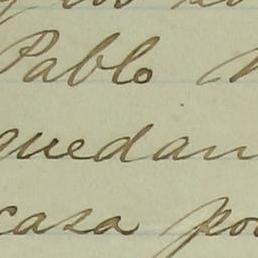 Pablo
quedan
casa po